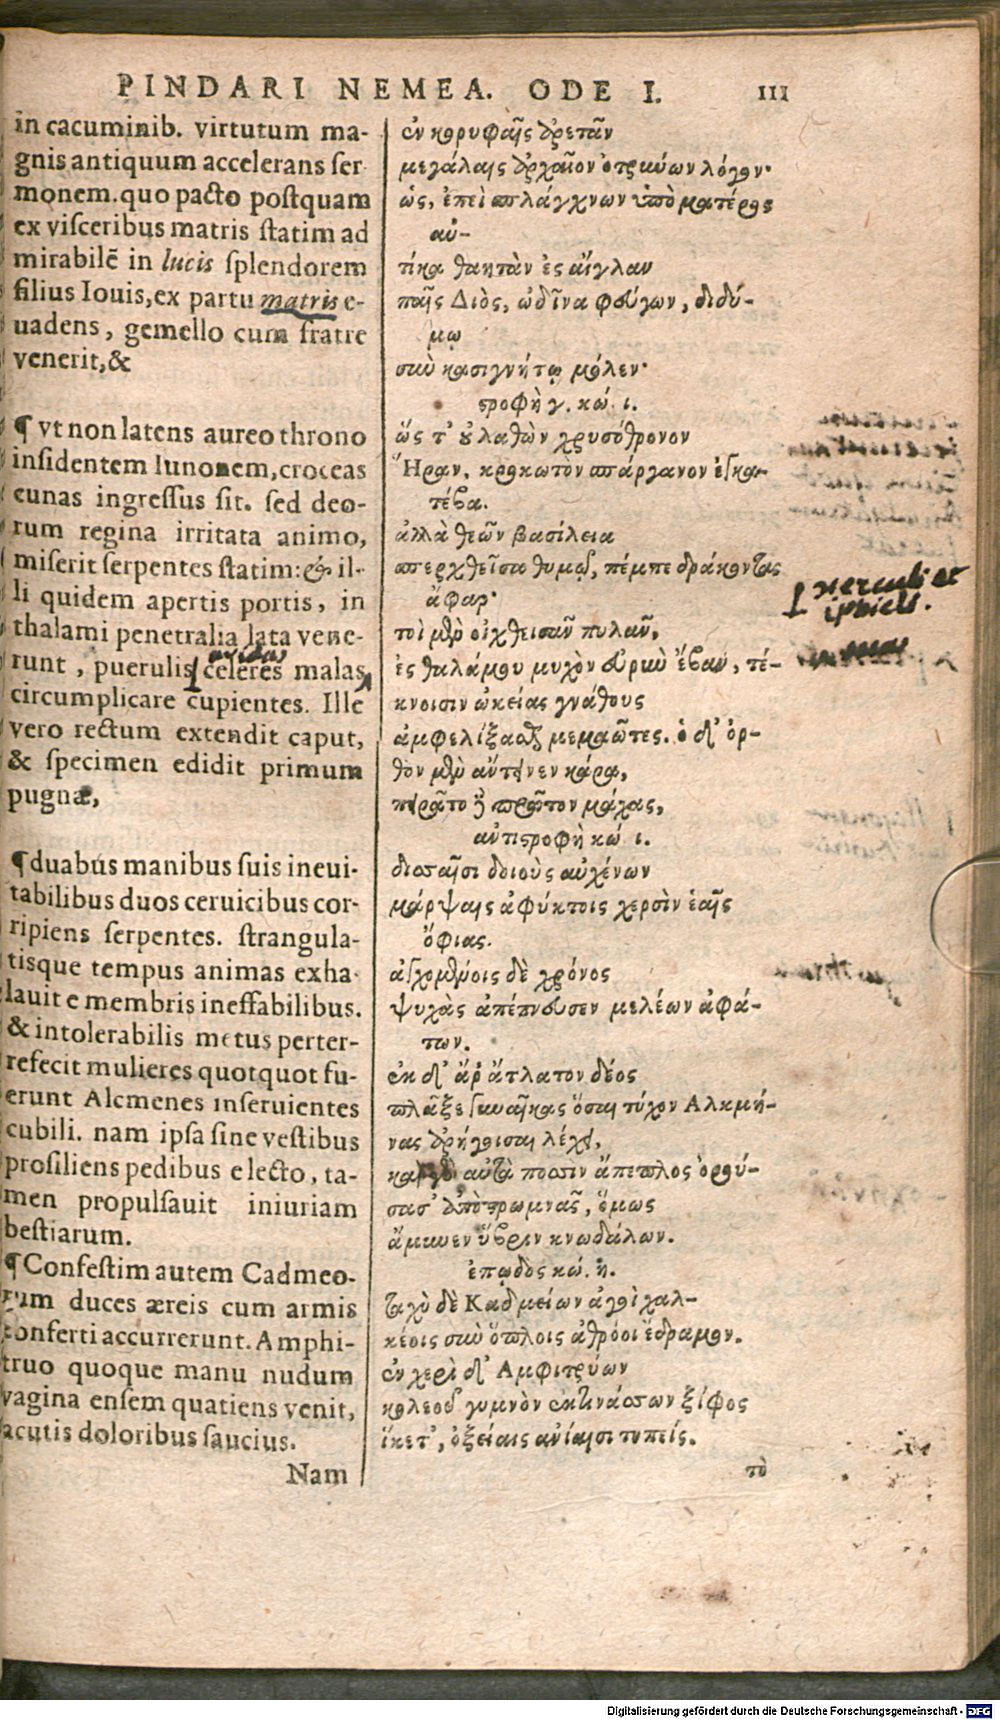 PINDARI NEMEA. ODE I. 111
in cacuminib. virtutum ma-
gnis antiquum accelerans ser
monem. quo pacto postquam
ex visceribus matris statim ad
mirabilē in lucis splendorem
filius Iouis, ex partu matris e-
uadens, gemello cum fratre
venerit, &
¶ vt non latens aureo throno
insidentem Iunonem, croceas
cunas ingressus sit. sed deo-
rum regina irritata animo,
miserit serpentes statim: & il-
li quidem apertis portis, in
thalami penetralia lata vene-
auidas
runt, puerulis celeres malas
circumplicare cupientes. Ille
vero rectum extendit caput,
& specimen edidit primum
pugnæ,
¶ duabus manibus suis ineui-
tabilibus duos ceruicibus cor-
ripiens serpentes. strangula-
tisque tempus animas exha-
lauit e membris ineffabilibus.
& intolerabilis metus perter-
refecit mulieres quotquot fu-
erunt Alcmenes inseruientes
cubili. nam ipsa sine vestibus
prosiliens pedibus e lecto, ta-
men propulsauit iniuriam
bestiarum.
¶ Confestim autem Cadmeo-
rum duces æreis cum armis
conferti accurrerunt. Amphi-
truo quoque manu nudum
vagina ensem quatiens venit,
acutis doloribus saucius.
Nam
ἐν κορυφαῖς ἀρετᾶν
μεγάλαις ἀρχαῖον ὀτρύνων λόγον·
ὡς, ἐπεὶ σπλάγχνων ὑπὸ ματέρος
αὐ-
τίκα θαητὰν ἐς αἴγλαν
παῖς Διὸς, ὠδῖνα φεύγων, διδύ-
μῳ
σὺν κασιγνήτῳ μόλεν·
στροφὴ γ. κώ. ι.
ὥς τ' οὐ λαθὼν χρυσόθρονον
Ἥραν, κροκωτὸν σπάργανον ἐγκα-
τέβα.
ἀλλὰ θεῶν βασίλεια
σπερχθεῖσα θυμῷ, πέμπε δράκοντας
ἄφαρ·
τοὶ μὲν οἰχθεισᾶν πυλᾶν,
ἐς θαλάμου μυχὸν εὐρὺν ἔβαν, τέ-
κνοισιν ὠκείας γνάθους
ἀμφελίξασθαι μεμαῶτες. ὁ δ' ὀρ-
θὸν μὲν αὔτεινεν κάρα,
πειρᾶτο δὲ πρῶτον μάχας,
ἀντιστροφὴ κώ. ι.
δισσαῖσι δοιοὺς αὐχένων
μάρψαις ἀφύκτοις χερσὶν ἑαῖς
ὄφιας.
ἀγχομένοις δὲ χρόνος
ψυχὰς ἀπέπνευσεν μελέων ἀφά-
των.
ἐκ δ' ἄρ' ἄτλατον δέος
πλᾶξε γυναῖκας ὅσαι τύχον Ἀλκμή-
νας ἀρήγοισαι λέχει,
καὶ γὰρ αὐτὰ ποσσὶν ἄπεπλος ὀρού-
σασ' ἀπὸ στρωμνᾶς, ὅμως
ἄμυνεν ὕβριν κνωδάλων.
ἐπῳδὸς κώ. η.
ταχὺ δὲ Καδμείων ἀγοὶ χαλ-
κέοις σὺν ὅπλοις ἀθρόοι ἔδραμον.
ἐν χερὶ δ' Ἀμφιτρύων
κολεοῦ γυμνὸν ἐκτινάσσων ξίφος
ἵκετ', ὀξείαις ἀνίαισι τυπείς.
τὸ
Herculi et
iphicli.
Digitalisierung gefördert durch die Deutsche Forschungsgemeinschaft - DFG